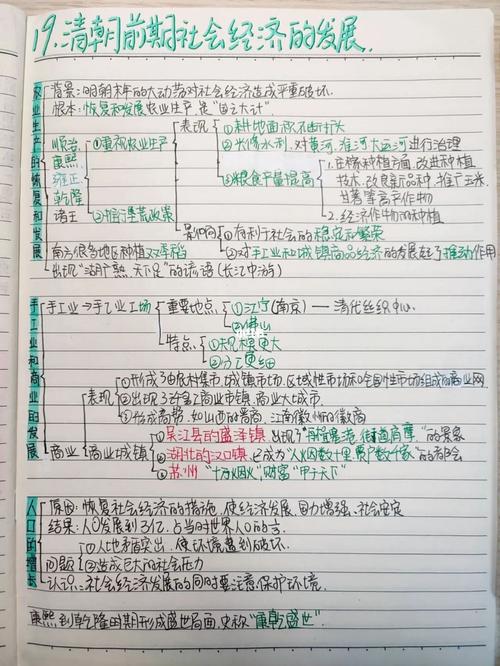 19.清朝前期社会经济的发展.
农业生产的恢复和发展
背景:明朝末年的大动荡对社会经济造成严重破坏.
根本:恢复和发展农业生产,是"国之大计".
顺治
康熙
雍正
乾隆
诸王
①重视农业生产
②推行垦荒政策
表现
①耕地面积不断扩大
②兴修水利,对黄河、淮河大运河进行治理
③粮食产量提高
1.在粮种植方面,改进种植
技术,改良新品种,推广玉米、
甘薯等高产作物
2.经济作物的种植
影响
①有利于社会的稳定和繁荣
②对手工业和城镇商品经济的发展起了推动作用
南方很多地区种植双季稻
出现"湖广熟,天下足"的谚语(长江中游)
手工业和商业的发展
手工业→手工业工场
重要地点
①江宁(南京)——清代丝织中心.
②佛山
特点
①规模更大
②分工更细
商业
表现
①形成了由农村集市,城镇市场、区域性市场和全国性市场组成的商业网
②出现了许多工商业市镇,商业大城市.
③形成商帮,如山西的晋商,江南徽州的徽商
商业城镇
①吴江县的盛泽镇 出现了"街道肩摩"的景象
②湖北的汉口镇 已成为"人烟数十里,贾户数千家"的都会
③苏州 "十万烟火",财富"甲于天下"
人口的增长
原因:恢复社会经济的措施,使经济发展、国力增强、社会安定
结果:人口发展到3亿,占当时世界人口的
问题
①人地矛盾突出,使环境遭到破坏.
②造成巨大的社会压力
认识:社会经济发展的同时要注意保护环境.
康熙到乾隆时期形成盛世局面,史称"康乾盛世".